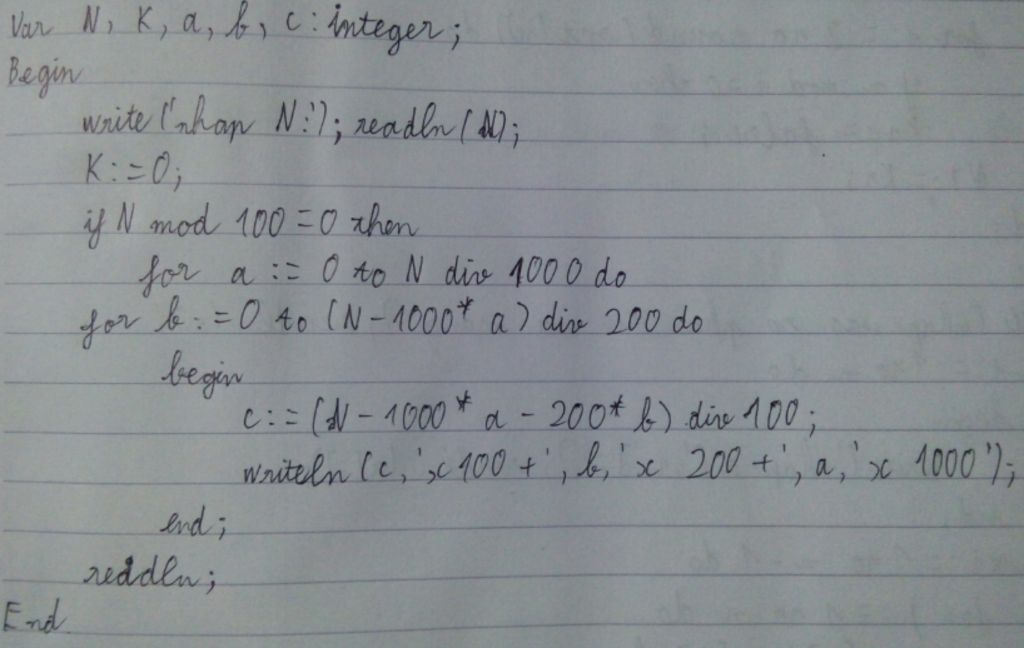 Var N, K, a, b, c : integer;
Begin
write ('nhap N:'); readln (N);
K := 0;
if N mod 100 = 0 then
for a := 0 to N div 1000 do
for b := 0 to (N - 1000* a) div 200 do
begin
c := (N - 1000* a - 200* b) div 100;
writeln (c, 'x100 +', b, 'x 200 +', a, 'x 1000');
end;
readln;
End.